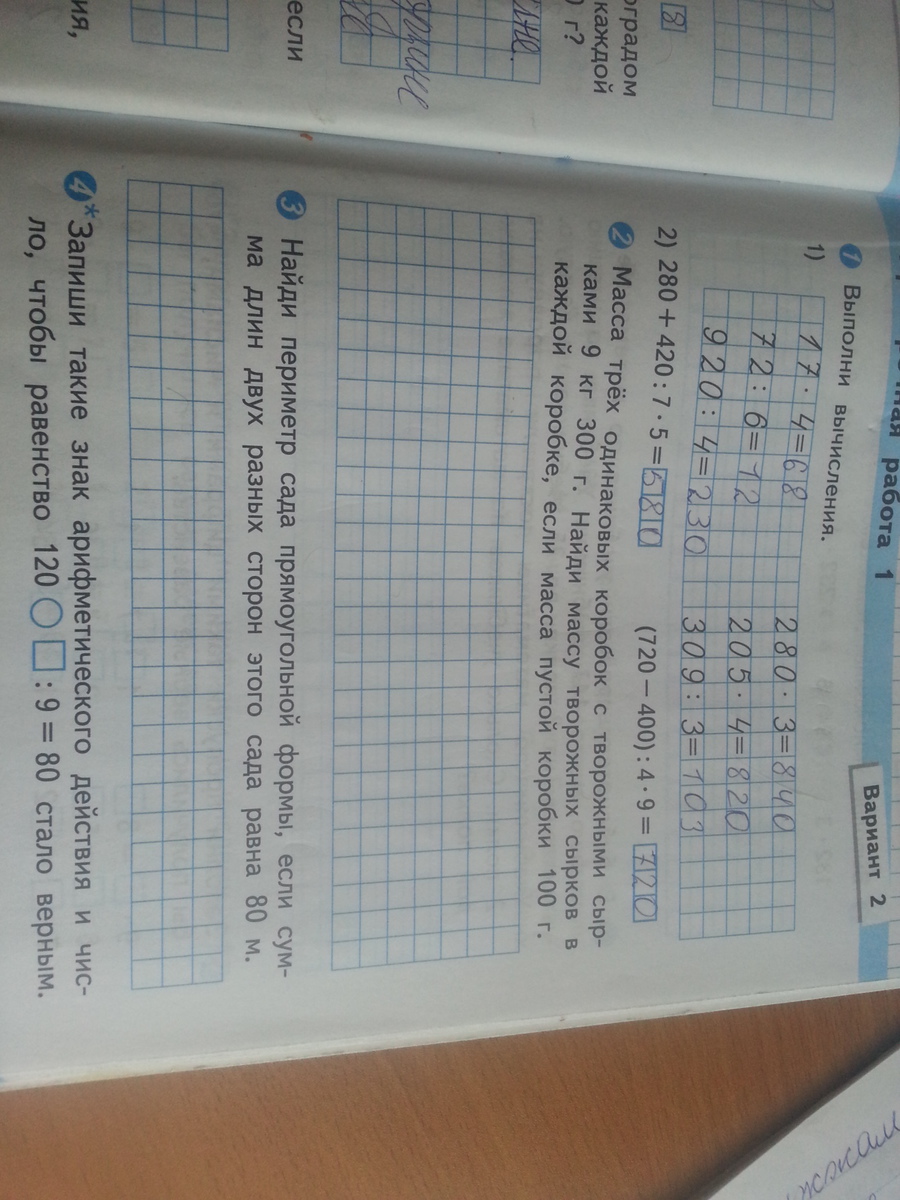 работа 1
Вариант 2
1 Выполни вычисления.
1) 17 · 4 = 68 280 · 3 = 840
72 : 6 = 12 205 · 4 = 820
920 : 4 = 230 309 : 3 = 103
2) 280 + 420 : 7 · 5 = 580 (720 – 400) : 4 · 9 = 720
2 Масса трёх одинаковых коробок с творожными сыр-
ками 9 кг 300 г. Найди массу творожных сырков в
каждой коробке, если масса пустой коробки 100 г.
3 Найди периметр сада прямоугольной формы, если сум-
ма длин двух разных сторон этого сада равна 80 м.
4* Запиши такие знак арифметического действия и чис-
ло, чтобы равенство 120 ○ □ : 9 = 80 стало верным.
8
каждой
г?
если